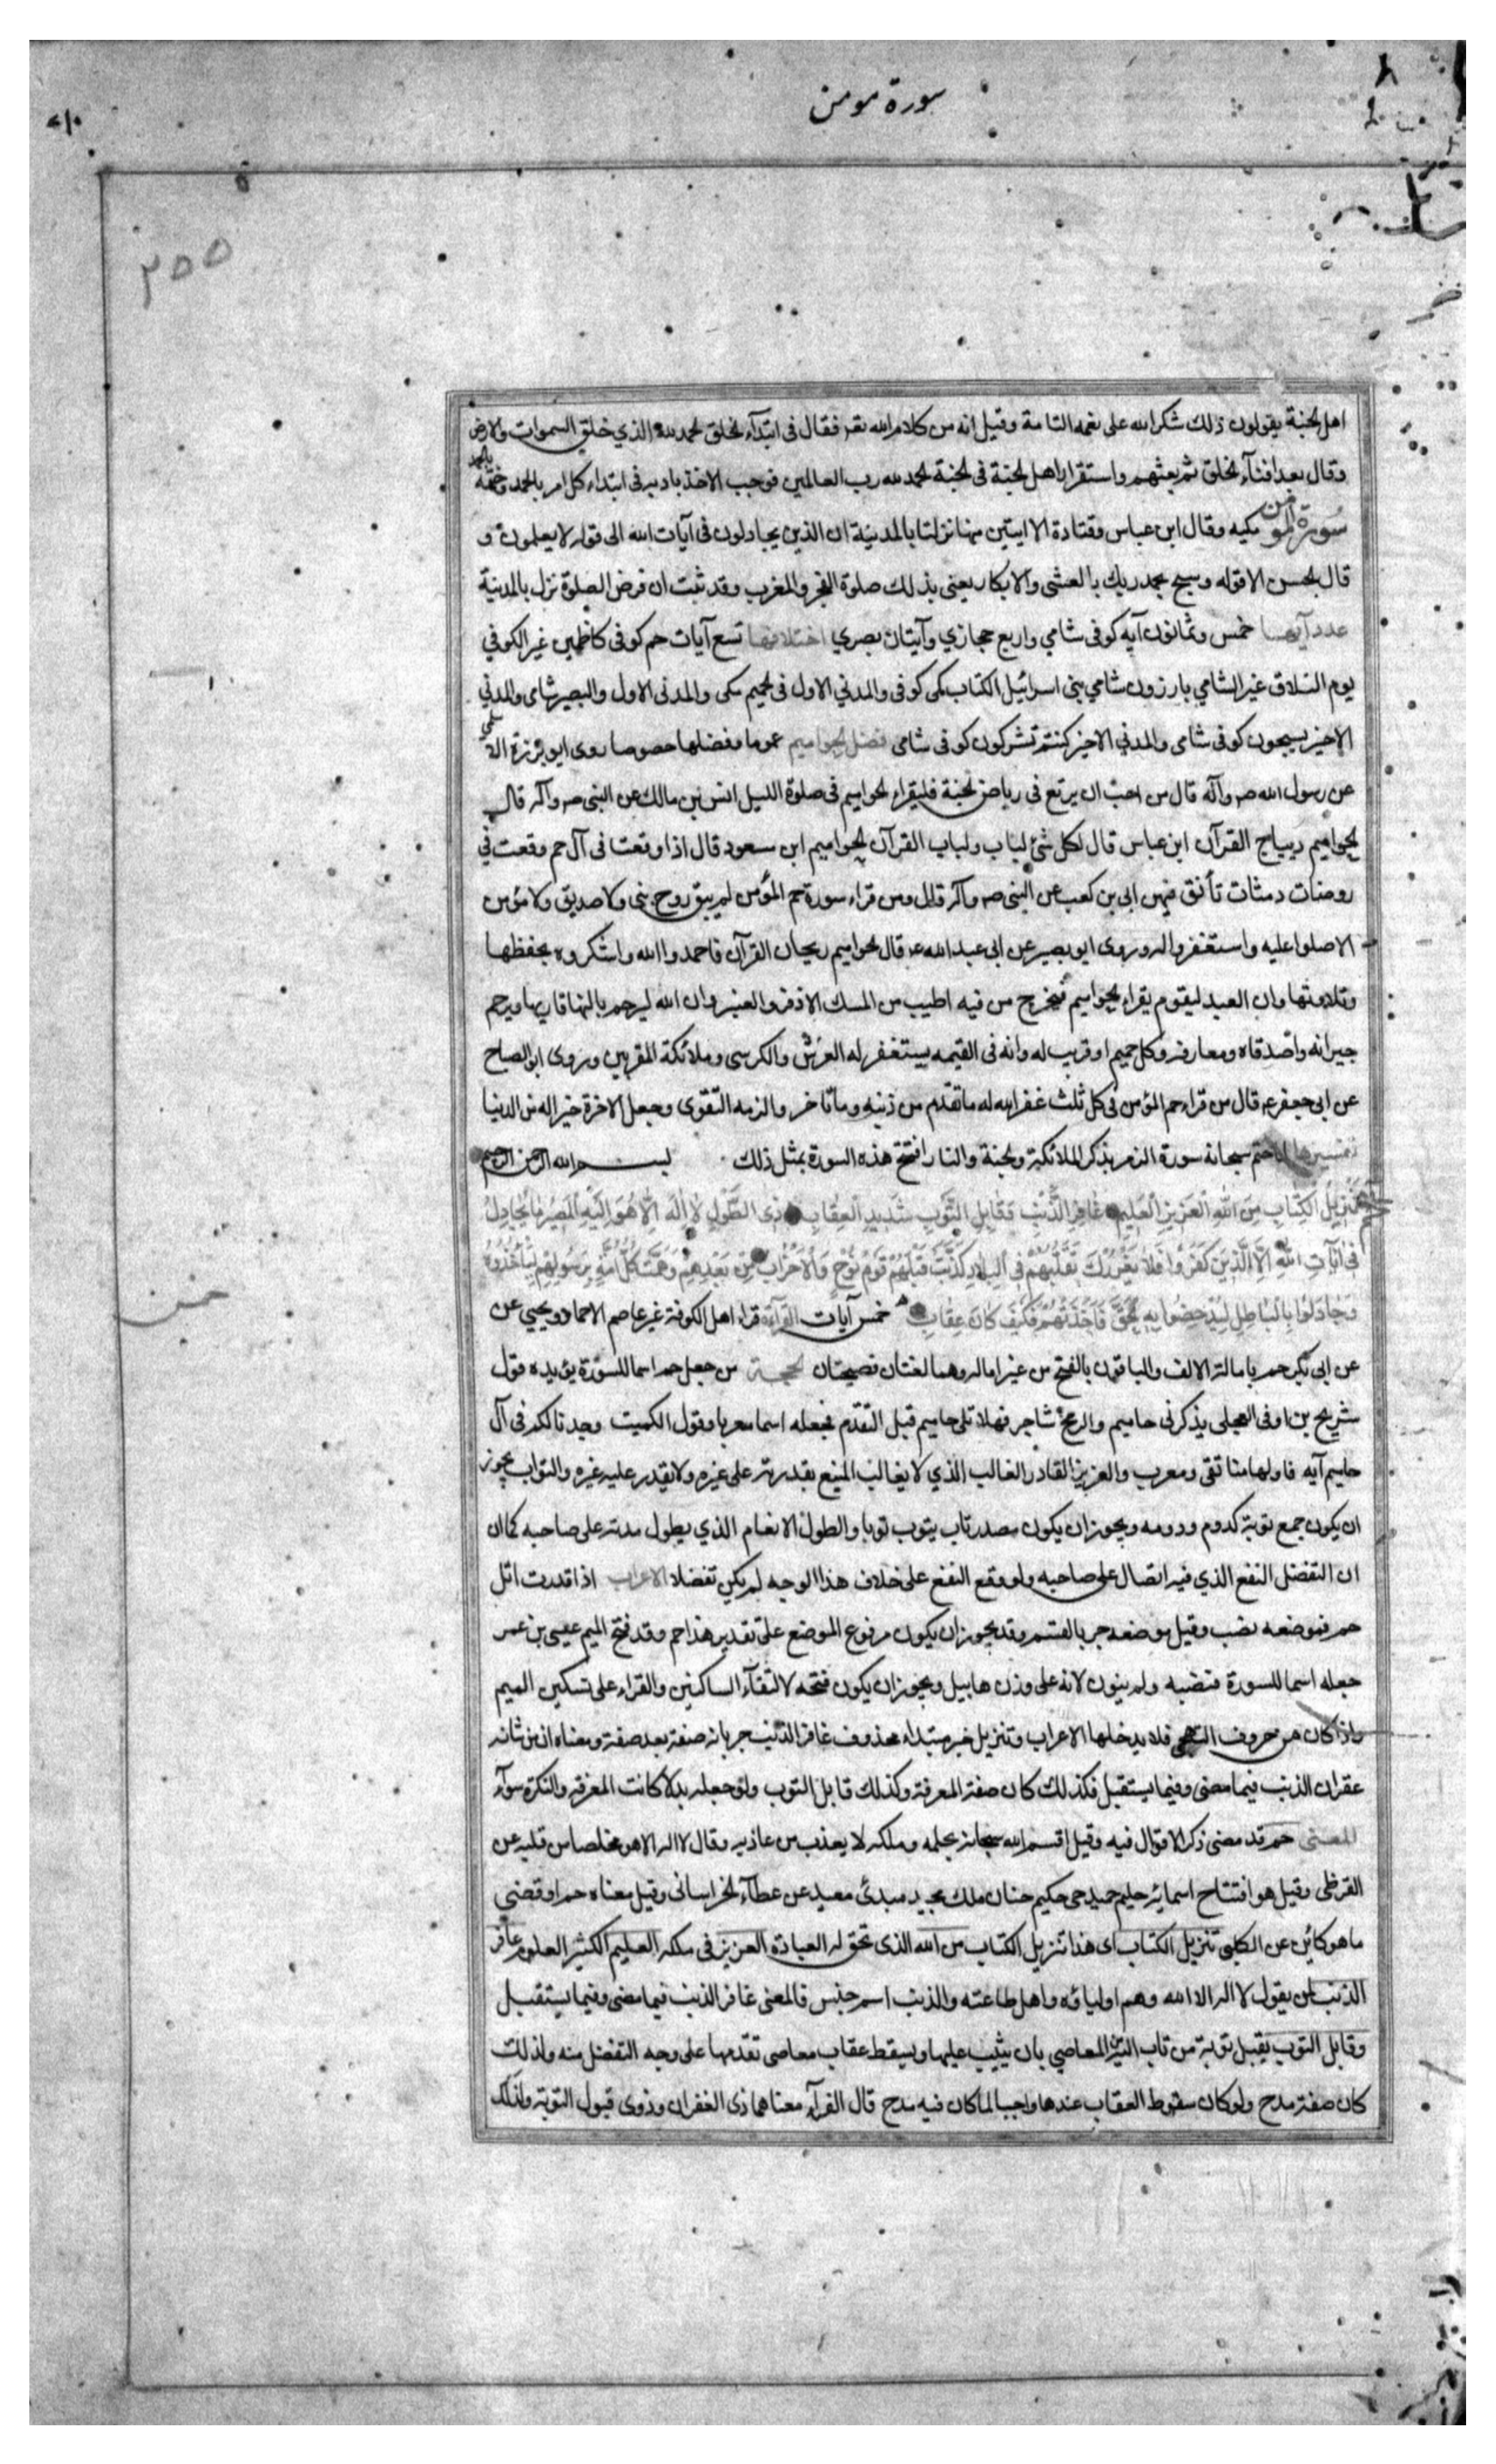 سورة مومن
٢٥٥
اهل الجنة يقولون ذلك شكرا لله على نعمه التامة وقيل انه من كلام الله تعـ فقال فى ابتدآء الخلق الحمد لله الذي خلق السموات والارض
وقال بعد افنآء الخلق ثم بعثهم واستقرار اهل الجنة فى الجنة الحمد لله رب العالمين فوجب الاخذ بادبه فى ابتداء كل امر بالحمد وختمه بالحمد
سورة المؤمن مكيه وقال ابن عباس وقتادة الا ايتين منها نزلتا بالمدينة ان الذين يجادلون فى آيات الله الى قوله لا يعلمون و
قال الحسن الا قوله وسبح بحمد ربك بالعشى والابكار يعنى بذلك صلوة الفجر والمغرب وقد ثبت ان فرض الصلوة نزل بالمدينة
عدد آيها خمس وثمانون آيه كوفى شامي واربع حجازي وآيتان بصري اختلافها تسع آيات حم كوفى كاظمين غير الكوفي
يوم التلاق غير الشامي بارزون شامي بنى اسرائيل الكتاب مكى كوفى والمدني الاول فى الحميم مكى والمدنى الاول والبصير شامى والمدني
الاخير يسحبون كوفى شامى والمدني الاخير كنتم تشركون كوفى شامى فضل الحواميم عموما وفضلها خصوصا روى ابو برزة الاسلمي
عن رسول الله صـ وآله قال من احب ان يرتع فى رياض الجنة فليقراء الحواميم فى صلوة الليل انس بن مالك عن النبى صـ وآله قال
الحواميم ديباج القرآن ابن عباس قال لكل شئ لباب ولباب القرآن الحواميم ابن مسعود قال اذا وقعت فى آل حم وقعت في
روضات دمثات تأنق فيهن ابى بن كعب عن النبى صـ وآله قال ومن قراء سورة حم المؤمن لم يبق روح نبى ولا صديق ولا مؤمن
الا صلوا عليه واستغفروا له وروى ابو بصير عن ابى عبد الله عـ قال الحواميم ريحان القرآن فاحمدوا الله واشكروه بحفظها
وتلاوتها وان العبد ليقوم يقراء الحواميم فيخرج من فيه اطيب من المسك الاذفر والعنبر وان الله ليرحم تاليها وقاريها ويرحم
جيرانه واصدقاه ومعارفه وكل حميم او قريب له وانه فى القيمه يستغفر له العرش والكرسى وملائكة المقربين وروى ابو الصباح
عن ابى جعفر عـ قال من قراء حم المؤمن فى كل ثلث غفر الله له ما تقدم من ذنبه وما تاخر والزمه التقوى وجعل الاخرة خيرا له من الدنيا
تفسيرها لما ختم سبحانه سورة الزمر بذكر الملائكة والجنة والنار افتتح هذه السورة بمثل ذلك بسم الله الرحمن الرحيم
حم تَنْزِيلُ الْكِتَابِ مِنَ اللّهِ الْعَزِيزِ الْعَلِيمِ غَافِرِ الذَّنْبِ وَقَابِلِ التَّوْبِ شَدِيدِ الْعِقَابِ ذِي الطَّوْلِ لَا إِلَهَ إِلَّا هُوَ إِلَيْهِ الْمَصِيرُ مَا يُجَادِلُ
فِى آيَاتِ اللّهِ إِلَّا الَّذِينَ كَفَرُوا فَلَا يَغْرُرْكَ تَقَلُّبُهُمْ فِى الْبِلَادِ كَذَّبَتْ قَبْلَهُمْ قَوْمُ نُوحٍ وَالْأَحْزَابُ مِنْ بَعْدِهِمْ وَهَمَّتْ كُلُّ أُمَّةٍ بِرَسُولِهِمْ لِيَأْخُذُوهُ
وَجَادَلُوا بِالْبَاطِلِ لِيُدْحِضُوا بِهِ الْحَقَّ فَأَخَذْتُهُمْ فَكَيْفَ كَانَ عِقَابِ خمس آيات القرآءة قراء اهل الكوفة غير عاصم الا حماد ويحيى عن
عن ابى بكر حم بامالة الالف والباقون بالفتح من غير اماله وهما لغتان فصيحتان الحجة من جعل حم اسما للسورة يؤيده قول
شريح بن اوفى العجلى يذكرنى حاميم والرمح شاجر فهلا تلى حاميم قبل التقدم فجعله اسما معربا وقول الكميت وجدنا لكم فى آل
حاميم آيه فاولها منا تقى ومعرب والعزيز القادر الغالب الذي لا يغالب المنيع بقدرته على غيره ولا يقدر عليه غيره والتواب يجوز
ان يكون جمع توبة كدوم ودومه ويجوز ان يكون مصدر تاب يتوب توبا والطول الانعام الذي يطول مدته على صاحبه كما ان
ان التفضل النفع الذي فيه اتصال على صاحبه ولو وقع النفع على خلاف هذا الوجه لم يكن تفضلا الاعراب اذا قدرت اتل
حم فموضعه نصب وقيل موضعه جر بالقسم وقد يجوز ان يكون مرفوع الموضع على تقدير هذا حم وقد فتح الميم عيسى بن عمر
جعله اسما للسورة فنصبه ولم ينون لانه على وزن هابيل ويجوز ان يكون فتحه لالتقآء الساكنين والقراء على تسكين الميم
واذا كان من حروف التهجى فلا يدخلها الاعراب وتنزيل خبر مبتداء محذوف غافر الذنب جر بانه صفة بعد صفة ومعناه ان من شانه
غفران الذنب فيما مضى وفيما يستقبل فكذلك كان صفة المعرفة وكذلك قابل التوب ولو جعله بدلا كانت المعرفة والنكرة سوآء
المعنى حم قد مضى ذكر الاقوال فيه وقيل اقسم الله سبحانه بحلمه وملكه لا يعذب من عاذ به وقال لا اله الا هو مخلصا من قلبه عن
القرظى وقيل هو افتتاح اسمائه حليم حميد حى حكيم حنان ملك مجيد مبدئ معيد عن عطآء الخراسانى وقيل معناه حم اى قضى
ما هو كائن عن الكلبى تنزيل الكتاب اى هذا تنزيل الكتاب من الله الذى تحق له العبادة العزيز فى ملكه العليم الكثير العلوم غافر
الذنب لمن يقول لا اله الا الله وهم اولياؤه واهل طاعته والذنب اسم جنس فالمعنى غافر الذنب فيما مضى وفيما يستقبل
وقابل التوب يقبل توبة من تاب اليه من المعاصي بان يثيب عليها ويسقط عقاب معاصى تقدمها على وجه التفضل منه ولذلك
كان صفة مدح ولو كان سقوط العقاب عندها واجبا لما كان فيه مدح قال الفرآء معناهما ذى الغفران وذوى قبول التوبة ولذلك